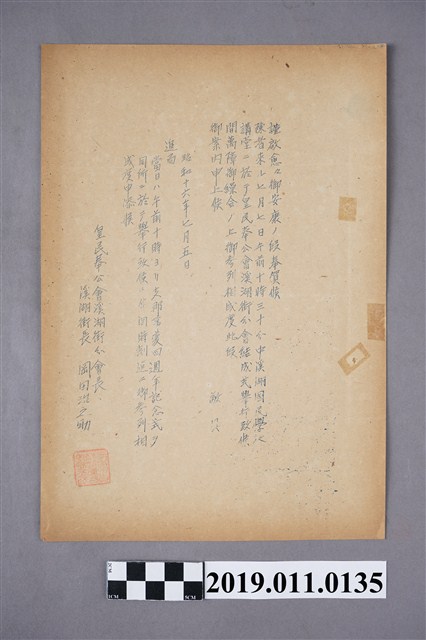 謹啟愈々御安康ノ段奉賀候
陳者來ル七月七日午前十時三十分中溪湖國民學校
講堂ニ於テ皇民奉公會溪湖街分會結成式擧行致候
間萬障御繰合ノ上御參列相成度此段
御案内申上候
敬具
昭和十六年七月五日
追而
當日ハ午前十時ヨリ支那事變四週年記念式ヲ
同所ニ於テ擧行致候ニ付時刻迄ニ御參列相
成度申添候
皇民奉公會溪湖街分會長
溪湖街長 岡田浩之助
2019.011.0135